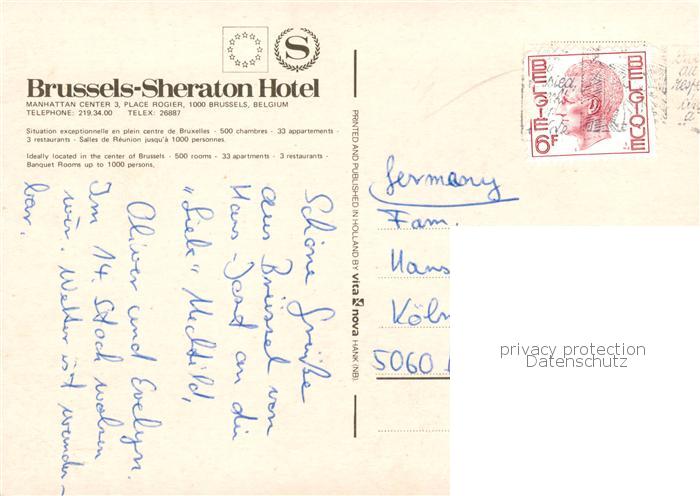 S
Brussels-Sheraton Hotel
MANHATTAN CENTER 3, PLACE ROGIER, 1000 BRUSSELS, BELGIUM
TELEPHONE: 219.34.00 TELEX: 26887
Situation exceptionnelle en plein centre de Bruxelles - 500 chambres - 33 appartements -
3 restaurants - Salles de Réunion jusqu'à 1000 personnes.
Ideally located in the center of Brussels - 500 rooms - 33 apartments - 3 restaurants -
Banquet Rooms up to 1000 persons.
Schöne Grüße
aus Brüssel von
Hans-Josef an die
"Liebe" Mechtild,
Oliver und Evelyn.
Im 14. Stock wohnen
wir. Wetter ist wunder-
bar.
PRINTED AND PUBLISHED IN HOLLAND BY vita nova HANK (NB)
BELGIE 6F
BELGIQUE
Germany
Fam.
Hans
Köln
5060
privacy protection
Datenschutz